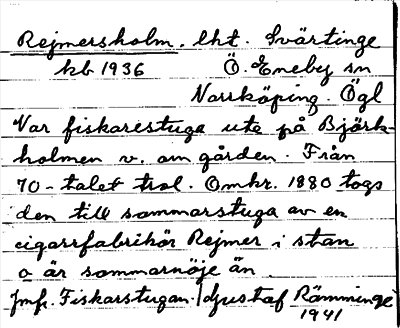 Rejmersholm. lht. Svärtinge
kb 1936 Ö. Eneby sn
Norrköping. Ögl
Var fiskarestuga ute på Björk-
holmen v. om gården. Från
70-talet trol. Omkr. 1880 togs
den till sommarstuga av en
cigarrfabrikör Rejmer i stan
o är sommarnöje än.
Jmf. Fiskarstugan. / Gustaf Rämminge
1941